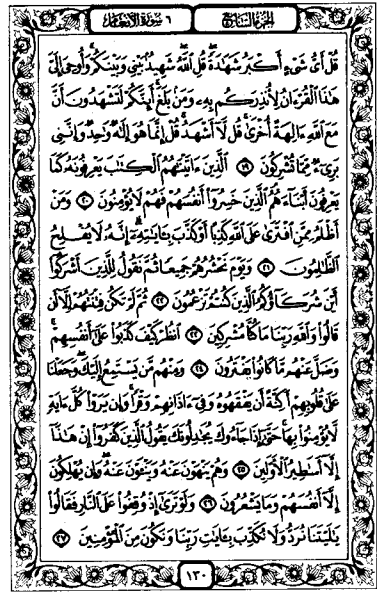 الجزء السابع
٦ سورة الأنعام
قُلْ أَيُّ شَيْءٍ أَكْبَرُ شَهَادَةً قُلِ اللَّهُ شَهِيدٌ بَيْنِي وَبَيْنَكُمْ وَأُوحِيَ إِلَيَّ
هَذَا الْقُرْءَانُ لِأُنْذِرَكُمْ بِهِ وَمَنْ بَلَغَ أَئِنَّكُمْ لَتَشْهَدُونَ أَنَّ
مَعَ اللَّهِ ءَالِهَةً أُخْرَى قُلْ لَا أَشْهَدُ قُلْ إِنَّمَا هُوَ إِلَهٌ وَاحِدٌ وَإِنَّنِي
بَرِيءٌ مِمَّا تُشْرِكُونَ ١٩ الَّذِينَ ءَاتَيْنَاهُمُ الْكِتَابَ يَعْرِفُونَهُ كَمَا
يَعْرِفُونَ أَبْنَاءَهُمُ الَّذِينَ خَسِرُوا أَنْفُسَهُمْ فَهُمْ لَا يُؤْمِنُونَ ٢٠ وَمَنْ
أَظْلَمُ مِمَّنِ افْتَرَى عَلَى اللَّهِ كَذِبًا أَوْ كَذَّبَ بِآيَاتِهِ إِنَّهُ لَا يُفْلِحُ
الظَّالِمُونَ ٢١ وَيَوْمَ نَحْشُرُهُمْ جَمِيعًا ثُمَّ نَقُولُ لِلَّذِينَ أَشْرَكُوا
أَيْنَ شُرَكَاؤُكُمُ الَّذِينَ كُنْتُمْ تَزْعُمُونَ ٢٢ ثُمَّ لَمْ تَكُنْ فِتْنَتُهُمْ إِلَّا أَنْ
قَالُوا وَاللَّهِ رَبِّنَا مَا كُنَّا مُشْرِكِينَ ٢٣ انْظُرْ كَيْفَ كَذَبُوا عَلَى أَنْفُسِهِمْ
وَضَلَّ عَنْهُمْ مَا كَانُوا يَفْتَرُونَ ٢٤ وَمِنْهُمْ مَنْ يَسْتَمِعُ إِلَيْكَ وَجَعَلْنَا
عَلَى قُلُوبِهِمْ أَكِنَّةً أَنْ يَفْقَهُوهُ وَفِي ءَاذَانِهِمْ وَقْرًا وَإِنْ يَرَوْا كُلَّ ءَايَةٍ
لَا يُؤْمِنُوا بِهَا حَتَّى إِذَا جَاءُوكَ يُجَادِلُونَكَ يَقُولُ الَّذِينَ كَفَرُوا إِنْ هَذَا
إِلَّا أَسَاطِيرُ الْأَوَّلِينَ ٢٥ وَهُمْ يَنْهَوْنَ عَنْهُ وَيَنْأَوْنَ عَنْهُ وَإِنْ يُهْلِكُونَ
إِلَّا أَنْفُسَهُمْ وَمَا يَشْعُرُونَ ٢٦ وَلَوْ تَرَى إِذْ وُقِفُوا عَلَى النَّارِ فَقَالُوا
يَالَيْتَنَا نُرَدُّ وَلَا نُكَذِّبَ بِآيَاتِ رَبِّنَا وَنَكُونَ مِنَ الْمُؤْمِنِينَ ٢٧
١٣٠